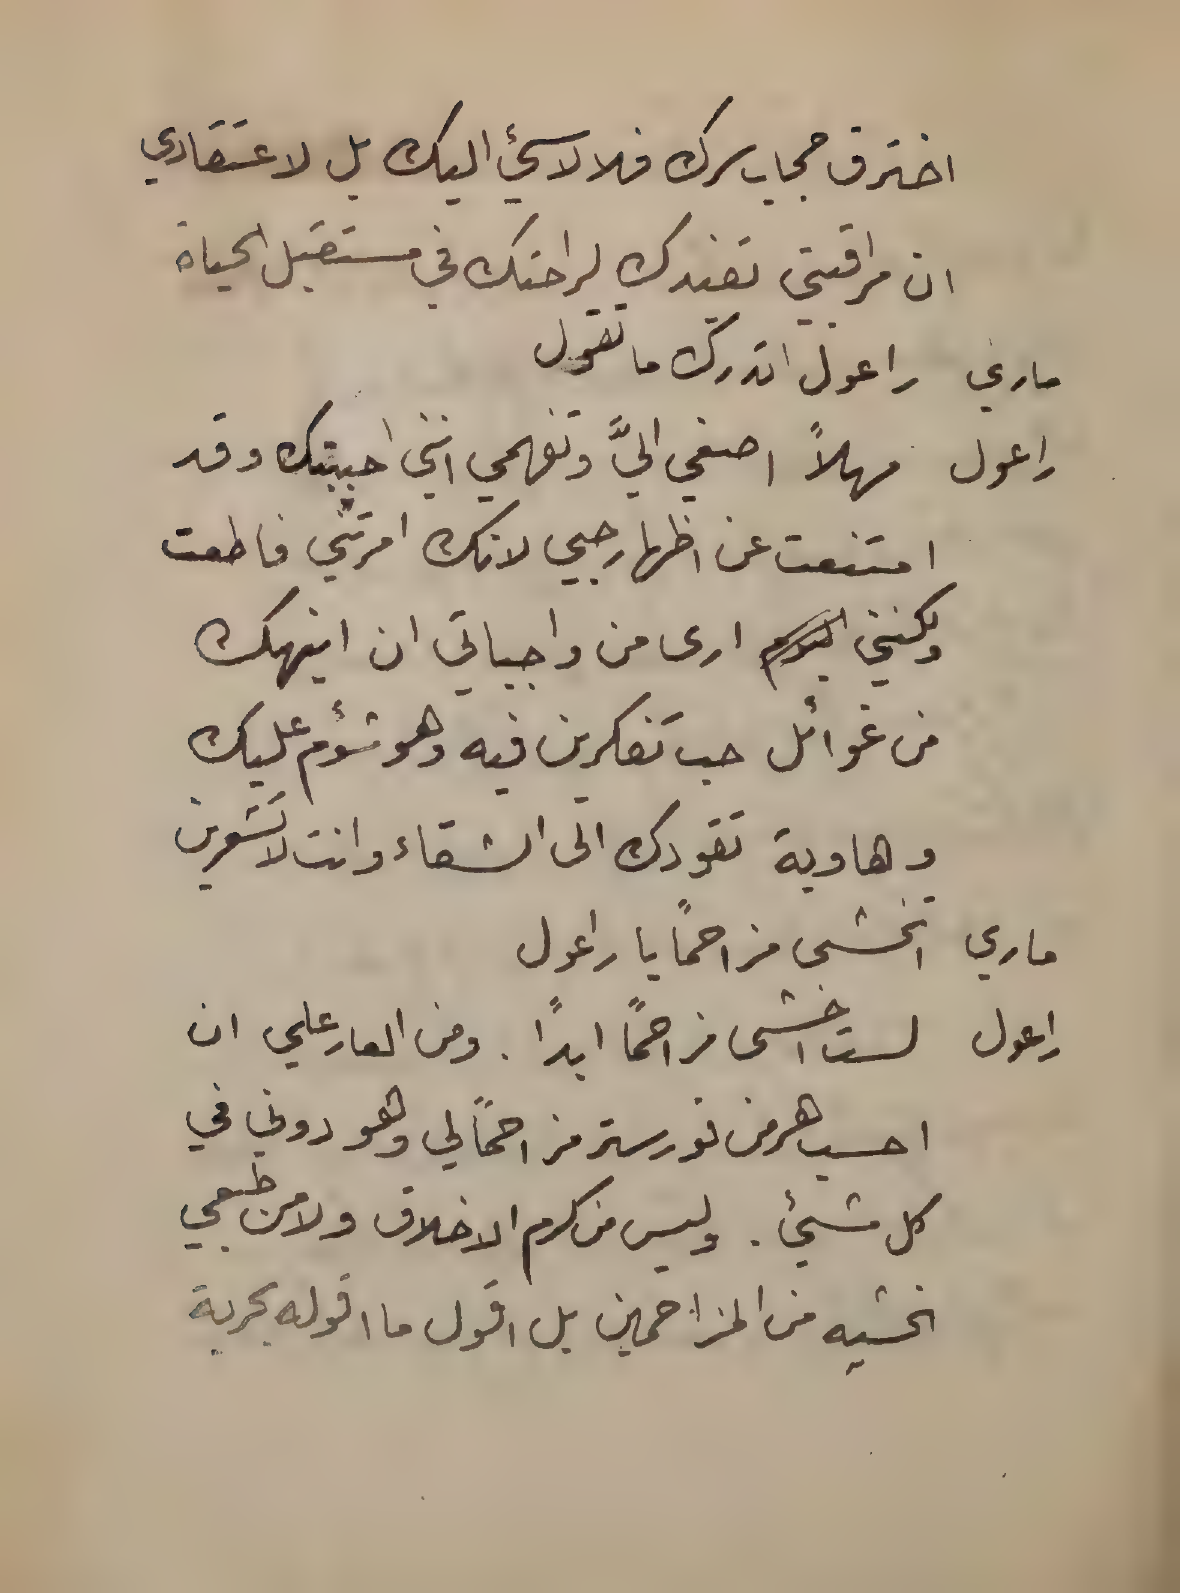 اخترق حجاب سرك فلا لاسئ اليك بل لاعتقادي
ان مراقبتي تفيدك لراحتك في مستقبل الحياة
ماري راعول اتدرك ما تقول
راعول مهلاً اصغي اليَّ وتفهمي انني احببتك وقد
امتنعت عن اظهار حبي لانك امرتني فاطعت
ولكنني اليوم ارى من واجباتي ان انبهك
من غوائل حب تفكرين فيه وهو شؤم عليك
وهاوية تقودك الى الشقاء وانت لا تشعرين
ماري اتخشى مزاحمًا يا راعول
راعول لست اخشى مزاحمًا ابدًا . ومن العار علي ان
احسب هرمن تورستر مزاحمًا لي وهو دوني في
كل شئ . وليس من كرم الاخلاق ولا من طبعي
اخشيه من المزاحمين بل اقول ما اقوله بحرية